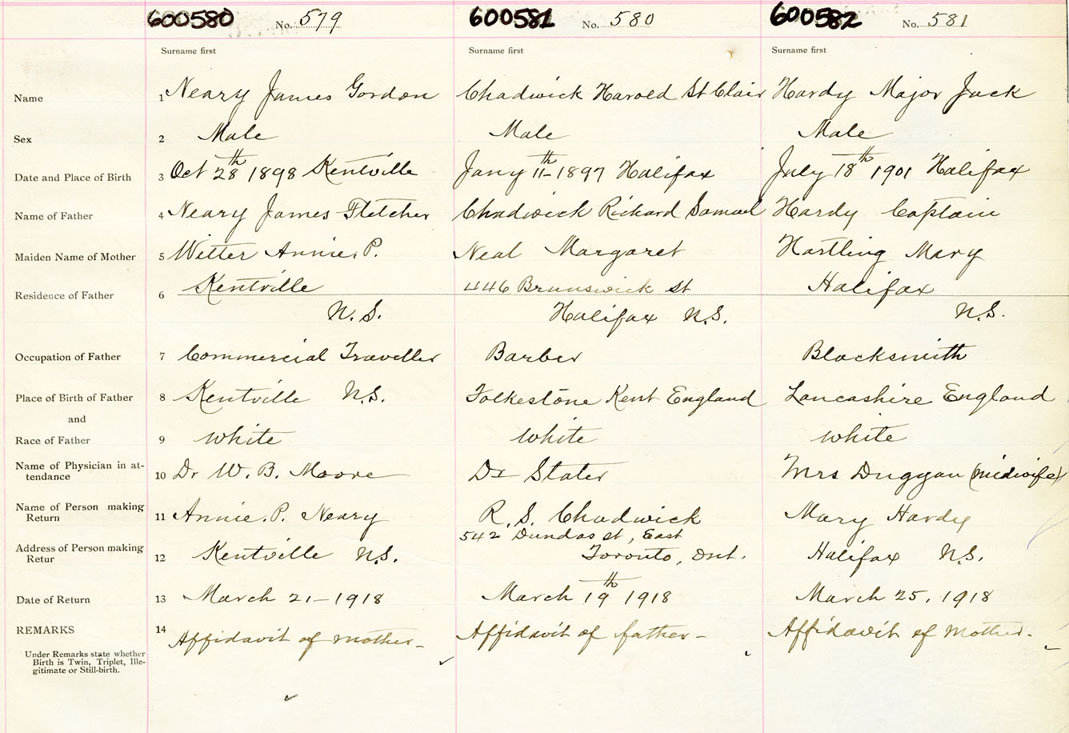 600580 No. 579 600581 No. 580 600582 No. 581
Surname first Surname first Surname first
Name 1 Neary James Gordon Chadwick Harold St Clair Hardy Major Jack
Sex 2 Male Male Male
Date and Place of Birth 3 Oct 28th 1898 Kentville Jany 11th - 1897 Halifax July 18th 1901 Halifax
Name of Father 4 Neary James Fletcher Chadwick Richard Samuel Hardy Captain
Maiden Name of Mother 5 Witter Annie. P. Neal Margaret Hartling Mary
Residence of Father 6 Kentville 446 Brunswick St Halifax
N.S. Halifax N.S. N.S.
Occupation of Father 7 Commercial Traveller Barber Blacksmith
Place of Birth of Father 8 Kentville N.S. Folkestone Kent England Lancashire England
and
Race of Father 9 White White White
Name of Physician in at-
tendance 10 Dr W. B. Moore Dr Slater Mrs Duggan (midwife)
Name of Person making
Return 11 Annie. P. Neary R. S. Chadwick Mary Hardy
542 Dundas st, East
Address of Person making
Retur 12 Kentville N.S. Toronto, Ont. Halifax N.S.
Date of Return 13 March 21 - 1918 March 19th 1918 March 25, 1918
REMARKS 14 Affidavit of mother - Affidavit of father - Affidavit of Mother -
Under Remarks state whether
Birth is Twin, Triplet, Ille-
gitimate or Still-birth.